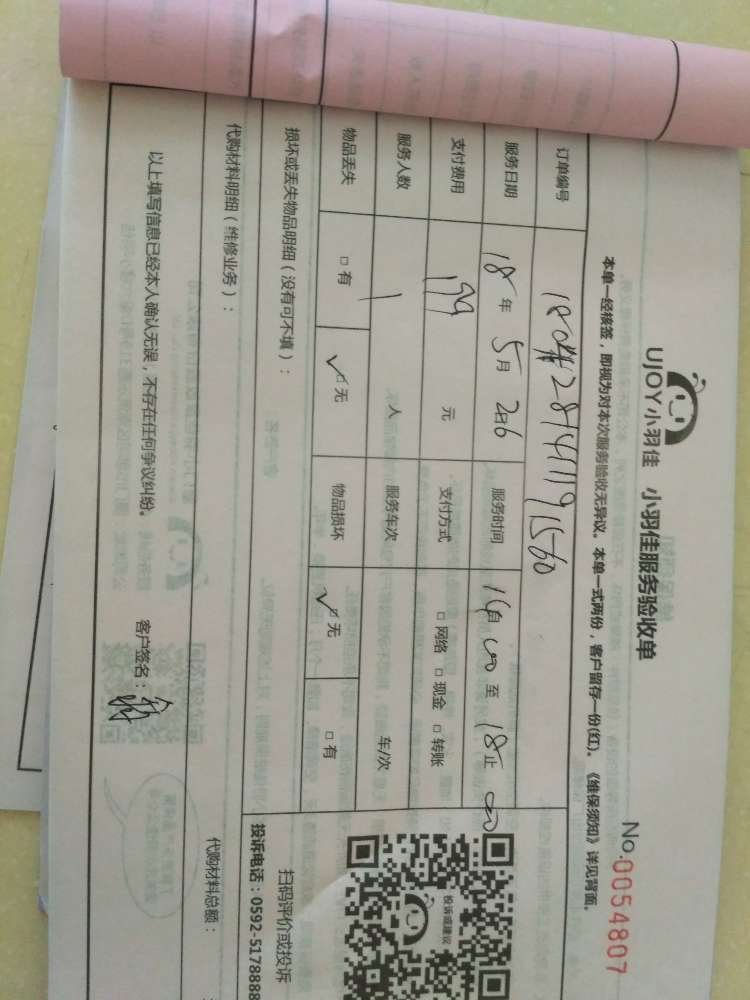 UJOY小羽佳 小羽佳服务验收单
No.0054807
本单一经核签，即视为对本次服务验收无异议。本单一式两份，客户留存一份(红)。《维保须知》详见背面。
订单编号
服务日期 18年 5月 26 服务时间 14自00至18止00
支付费用 199 元 支付方式 □网络 □现金 □转账
服务人数 1 人 服务车次 车/次
物品丢失 □有 ✓□无 物品损坏 ✓□无 □有
损坏或丢失物品明细（没有可不填）：
代购材料明细（维修业务）：
代购材料总额：
以上填写信息已经本人确认无误，不存在任何争议纠纷。 客户签名：
投诉或建议
扫码评价或投诉
投诉电话：0592-5178888